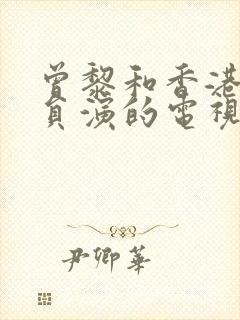 曾黎和香港
員演的電視
尹卿華